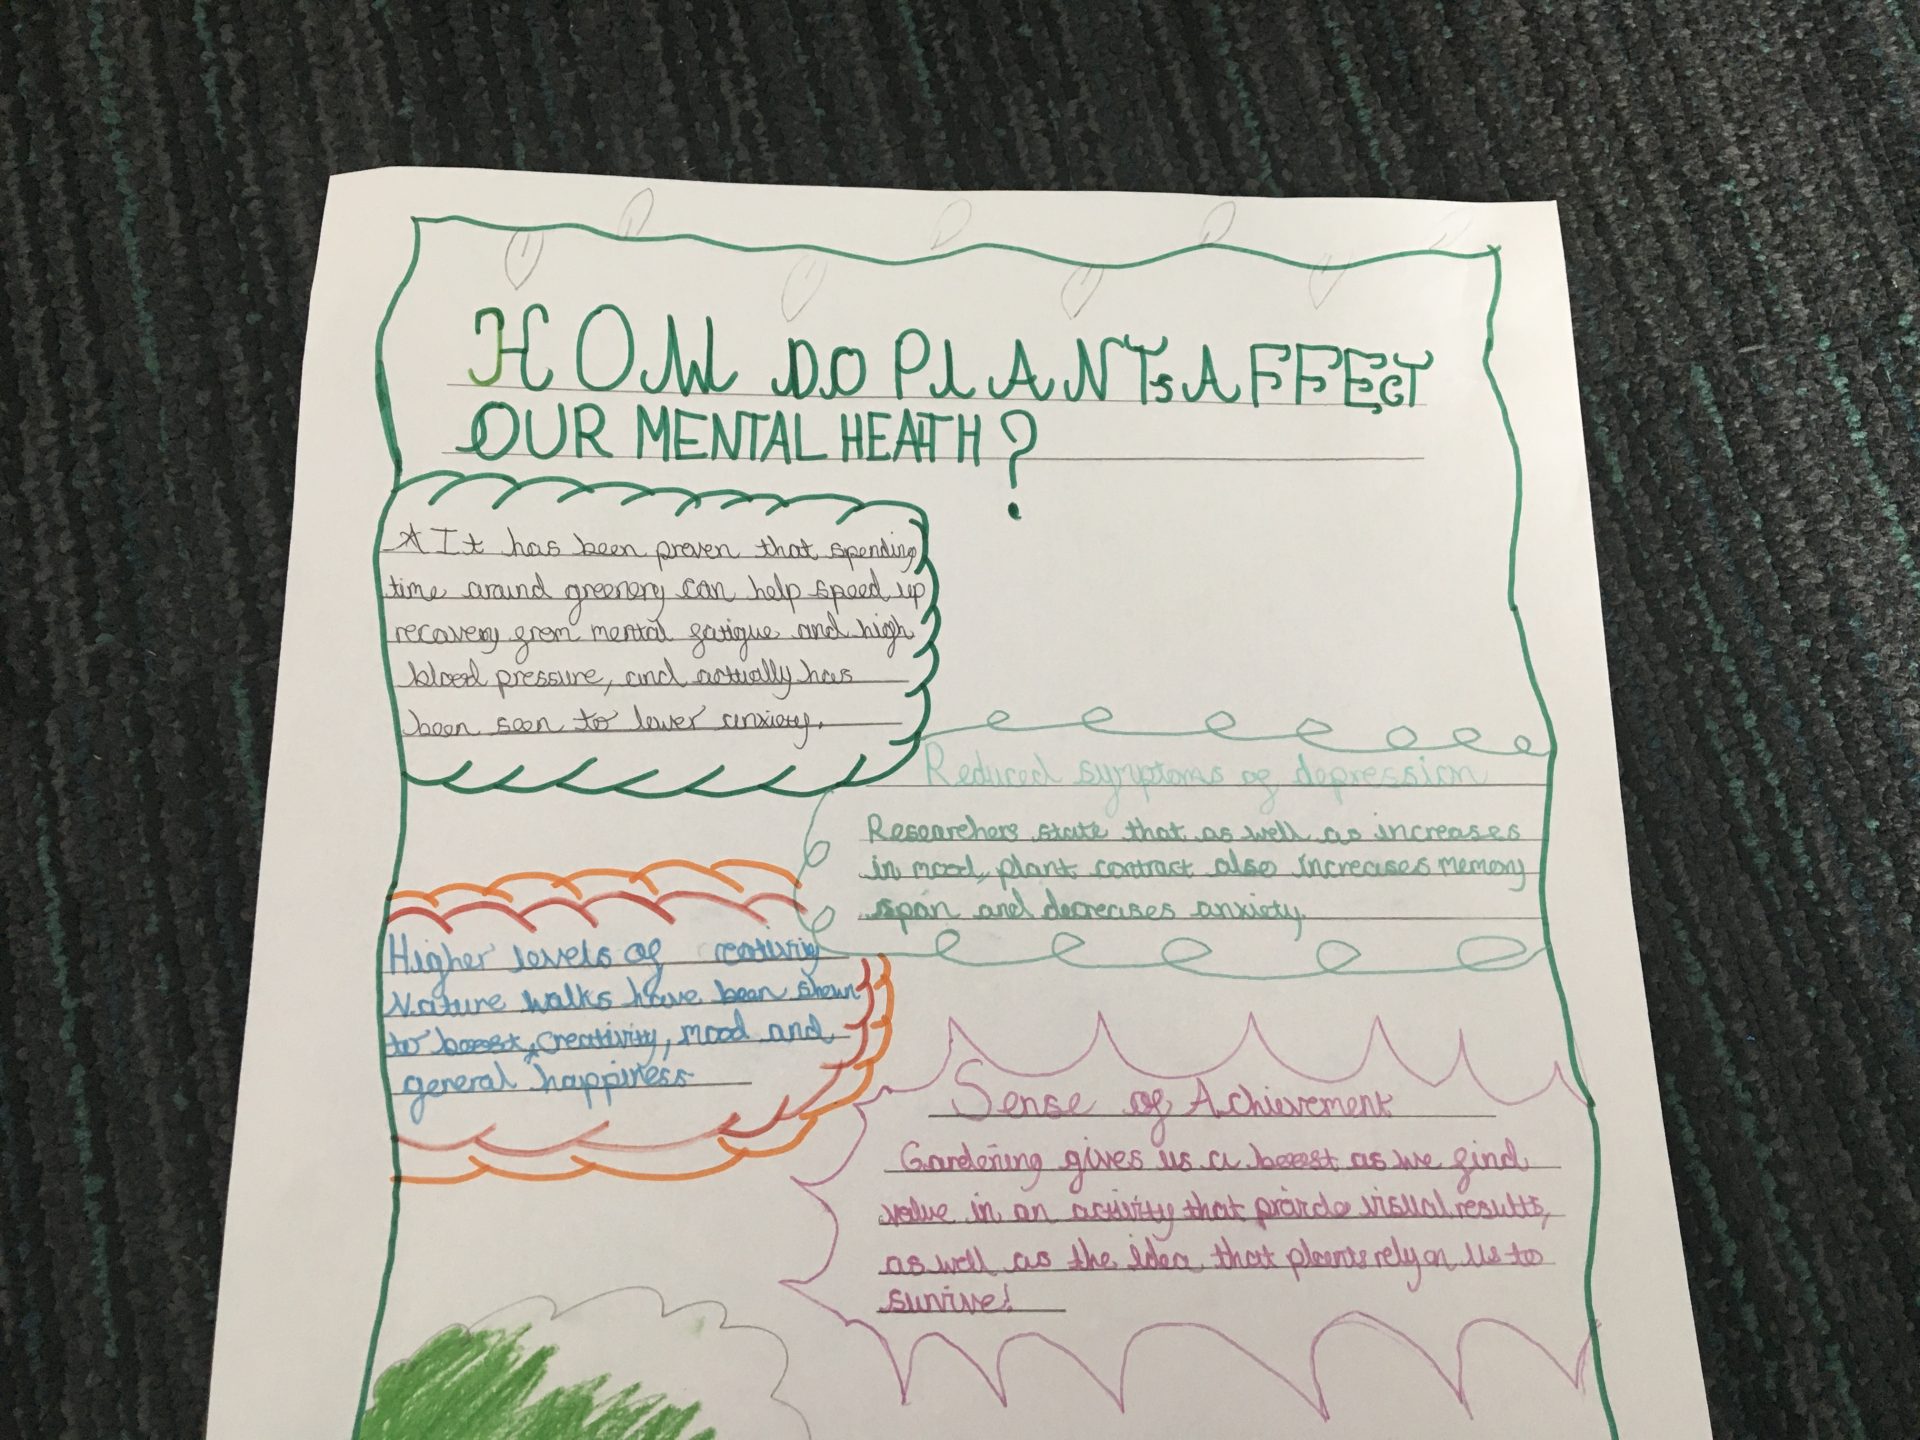 HOW DO PLANTS AFFECT
OUR MENTAL HEALTH?
It has been proven that spending
time around greenery can help speed up
recovery from mental fatigue and high
blood pressure, and actually has
been seen to lower anxiety.
Reduced symptoms of depression
Researchers state that as well as increases
in mood, plant contract also increases memory
span and decreases anxiety.
Higher levels of reativity
Nature walks have been shown
to boost, creativity, mood and
general happiness
Sense of Achievement
Gardening gives us a boost as we find
value in an activity that provide visual results,
as well as the idea that plants rely on us to
survive!